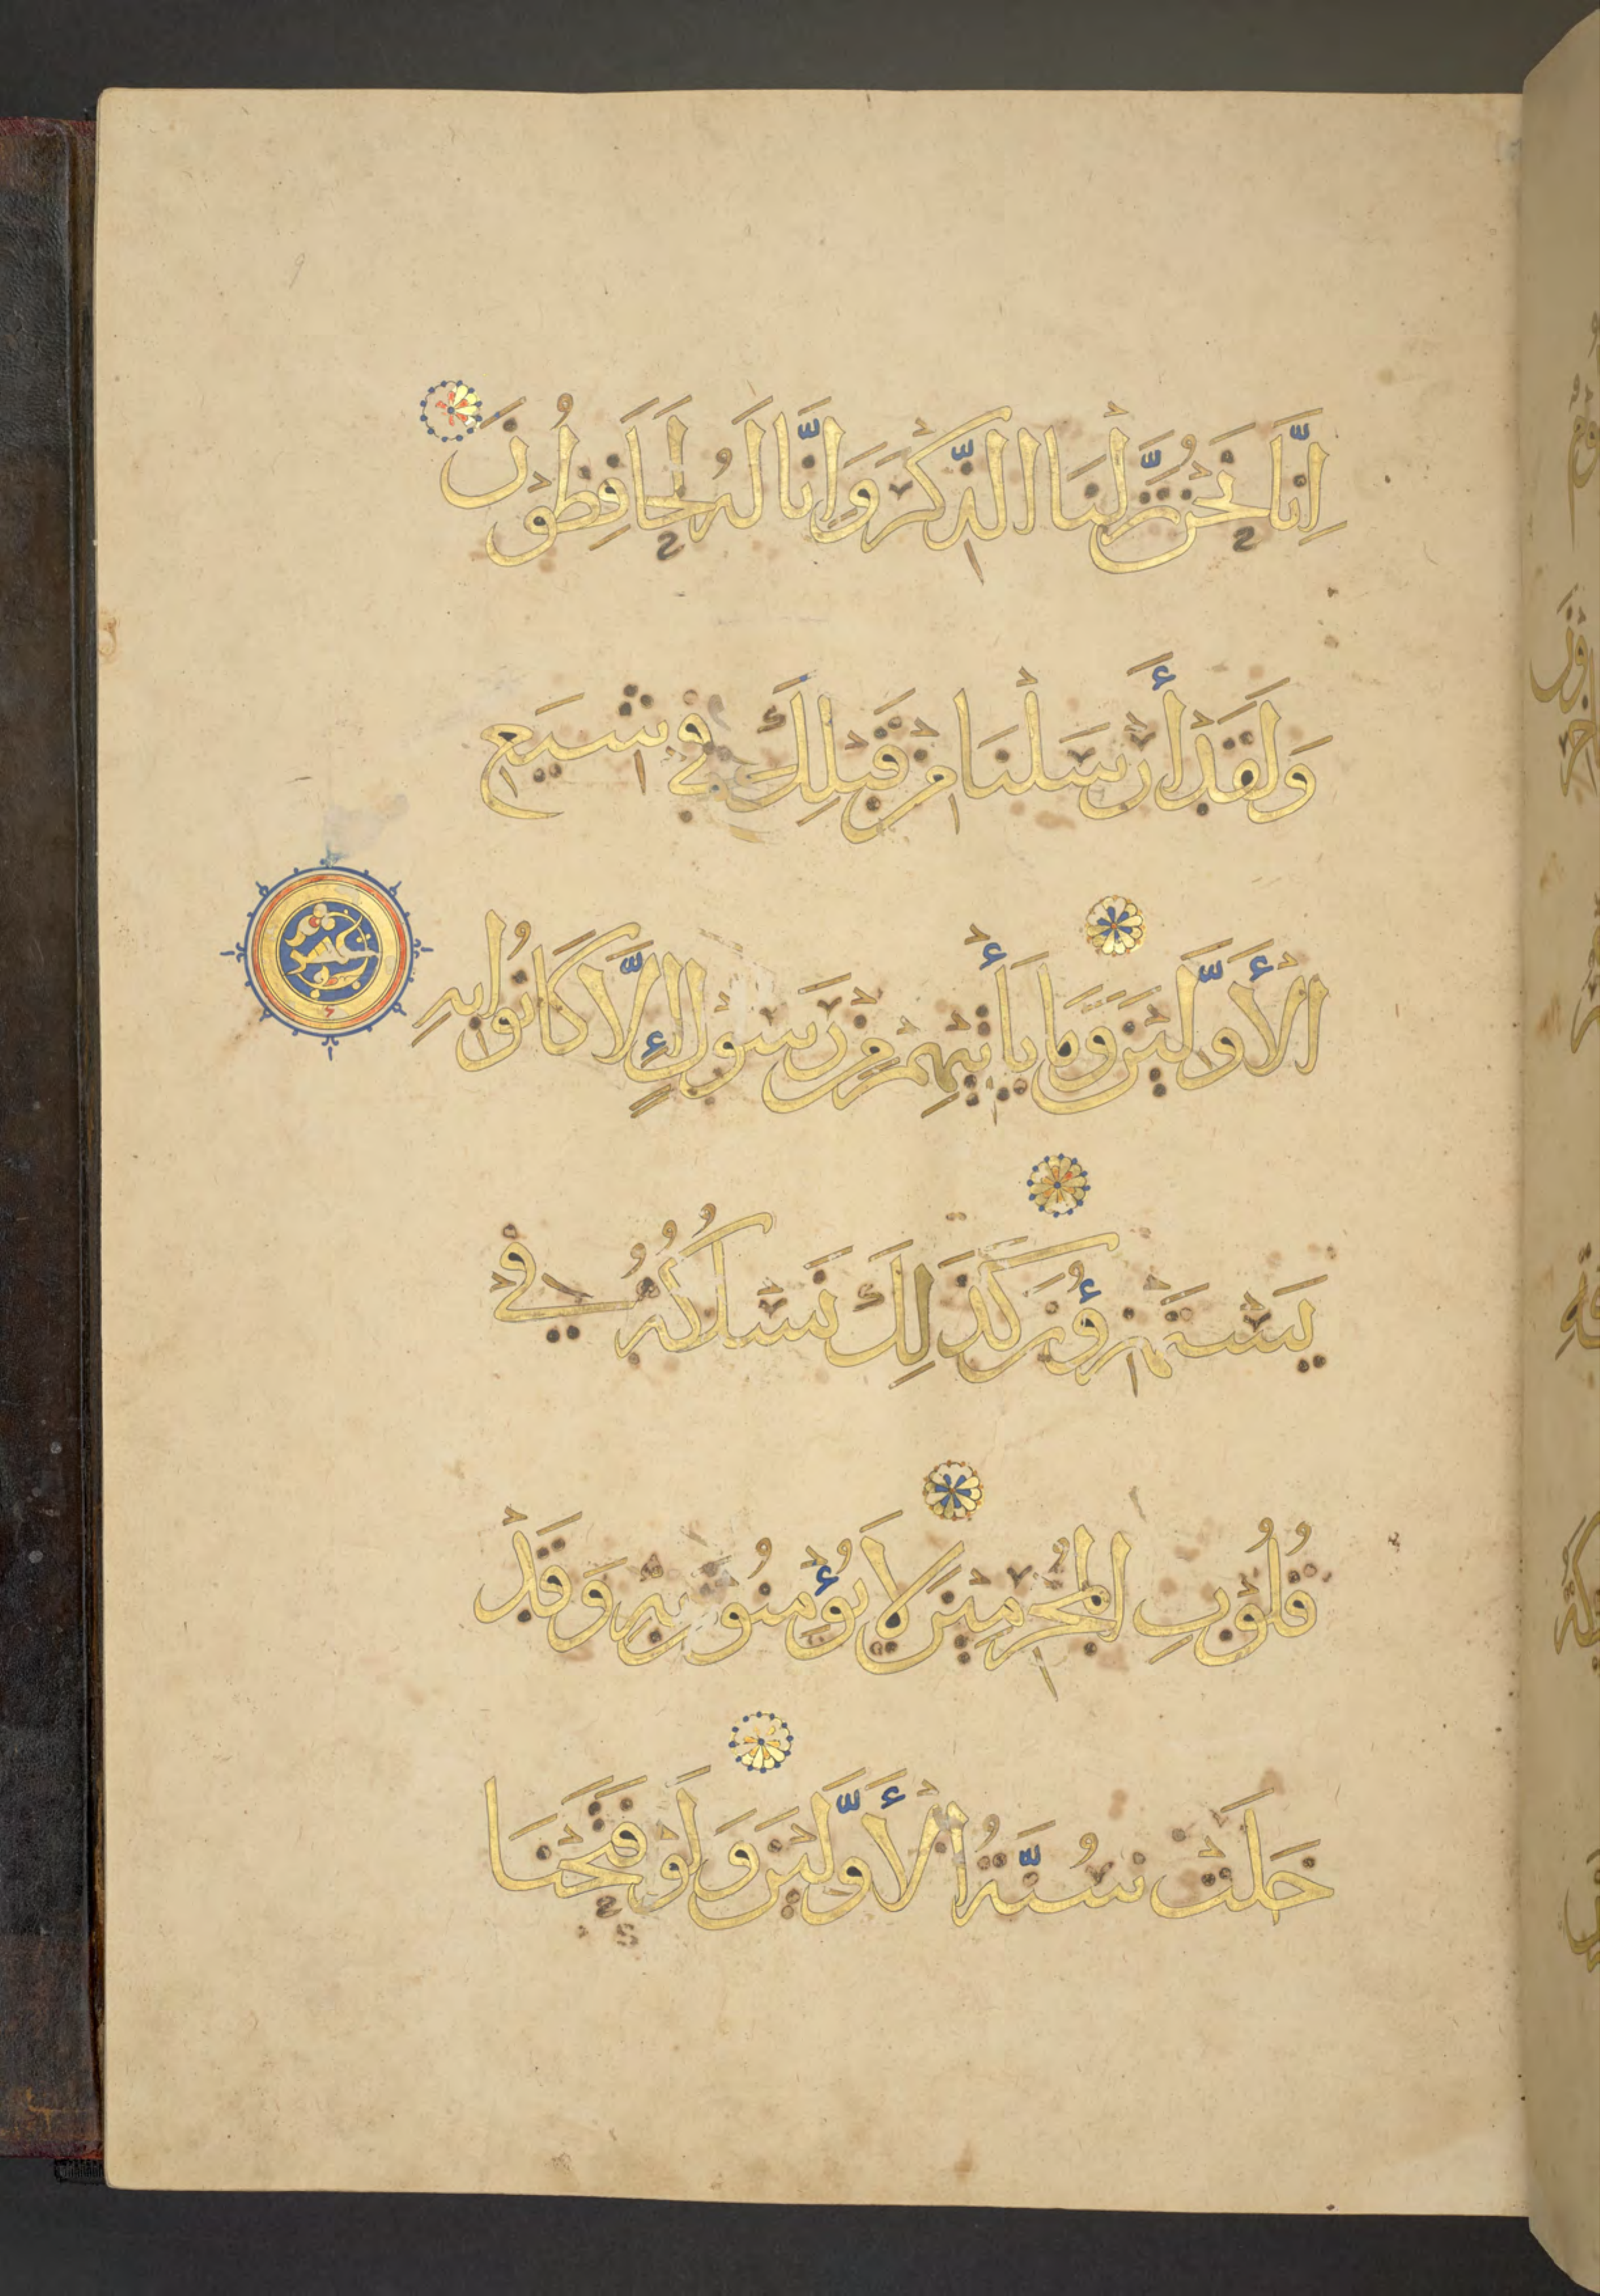 اِنَّا نَحْنُ نَزَّلْنَا الذِّكْرَ وَاِنَّا لَهُ لَحَافِظُوْنَ
وَلَقَدْ أَرْسَلْنَا مِنْ قَبْلِكَ فِيْ شِيَعِ
الْأَوَّلِيْنَ وَمَا يَأْتِيْهِمْ مِنْ رَسُوْلٍ إِلَّا كَانُوْا بِهِ
يَسْتَهْزِؤُنَ كَذَلِكَ نَسْلُكُهُ فِيْ
قُلُوْبِ الْمُجْرِمِيْنَ لَا يُؤْمِنُوْنَ بِهِ وَقَدْ
خَلَتْ سُنَّةُ الْأَوَّلِيْنَ وَلَوْ فَتَحْنَا